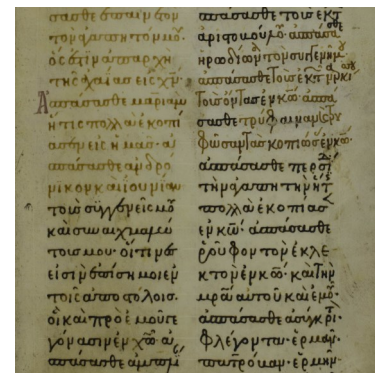 σασθε ἐπαίνετον
τὸν ἀγαπητόν μου·
ὅς ἐστιν ἀπαρχὴ
τῆς ἀχαΐας εἰς χν·
Ἀσπάσασθε μαριαμ
ἥτις πολλὰ ἐκοπί
ασεν εἰς ἡμᾶς· ἀ
σπάσασθε ἀνδρό
νικον καὶ ἰουνίαν
τοὺς συγγενεῖς μου
καὶ συναιχμαλώ
τους μου· οἵτινες
εἰσὶν ἐπίσημοι ἐν
τοῖς ἀποστόλοις·
οἳ καὶ πρὸ ἐμοῦ γε
γόνασιν ἐν χῶ· ἀ
σπάσασθε ἀμπλί
ἀσπάσασθε τοὺς ἐκ τ
ἀριστοβούλου· ἀσπάσασθε
ἡρωδίωνα τὸν συγγενῆ μου
ἀσπάσασθε τοὺς ἐκ τ ναρκίσου
τοὺς ὄντας ἐν κῶ· ἀσπά
σασθε τρύφαιναν καὶ τρυ
φῶσαν τὰς κοπιώσας ἐν κῶ·
ἀσπάσασθε περσίδα
τὴν ἀγαπητὴν ἥτις
πολλὰ ἐκοπίασεν
ἐν κῶ· ἀσπάσασθε
ῥοῦφον τὸν ἐκλε
κτὸν ἐν κῶ· καὶ τὴν
μρα αὐτοῦ καὶ ἐμοῦ·
ἀσπάσασθε ἀσύγκρι
φλέγοντα· ἑρμᾶν·
πατρόβαν· ἑρμῆν·